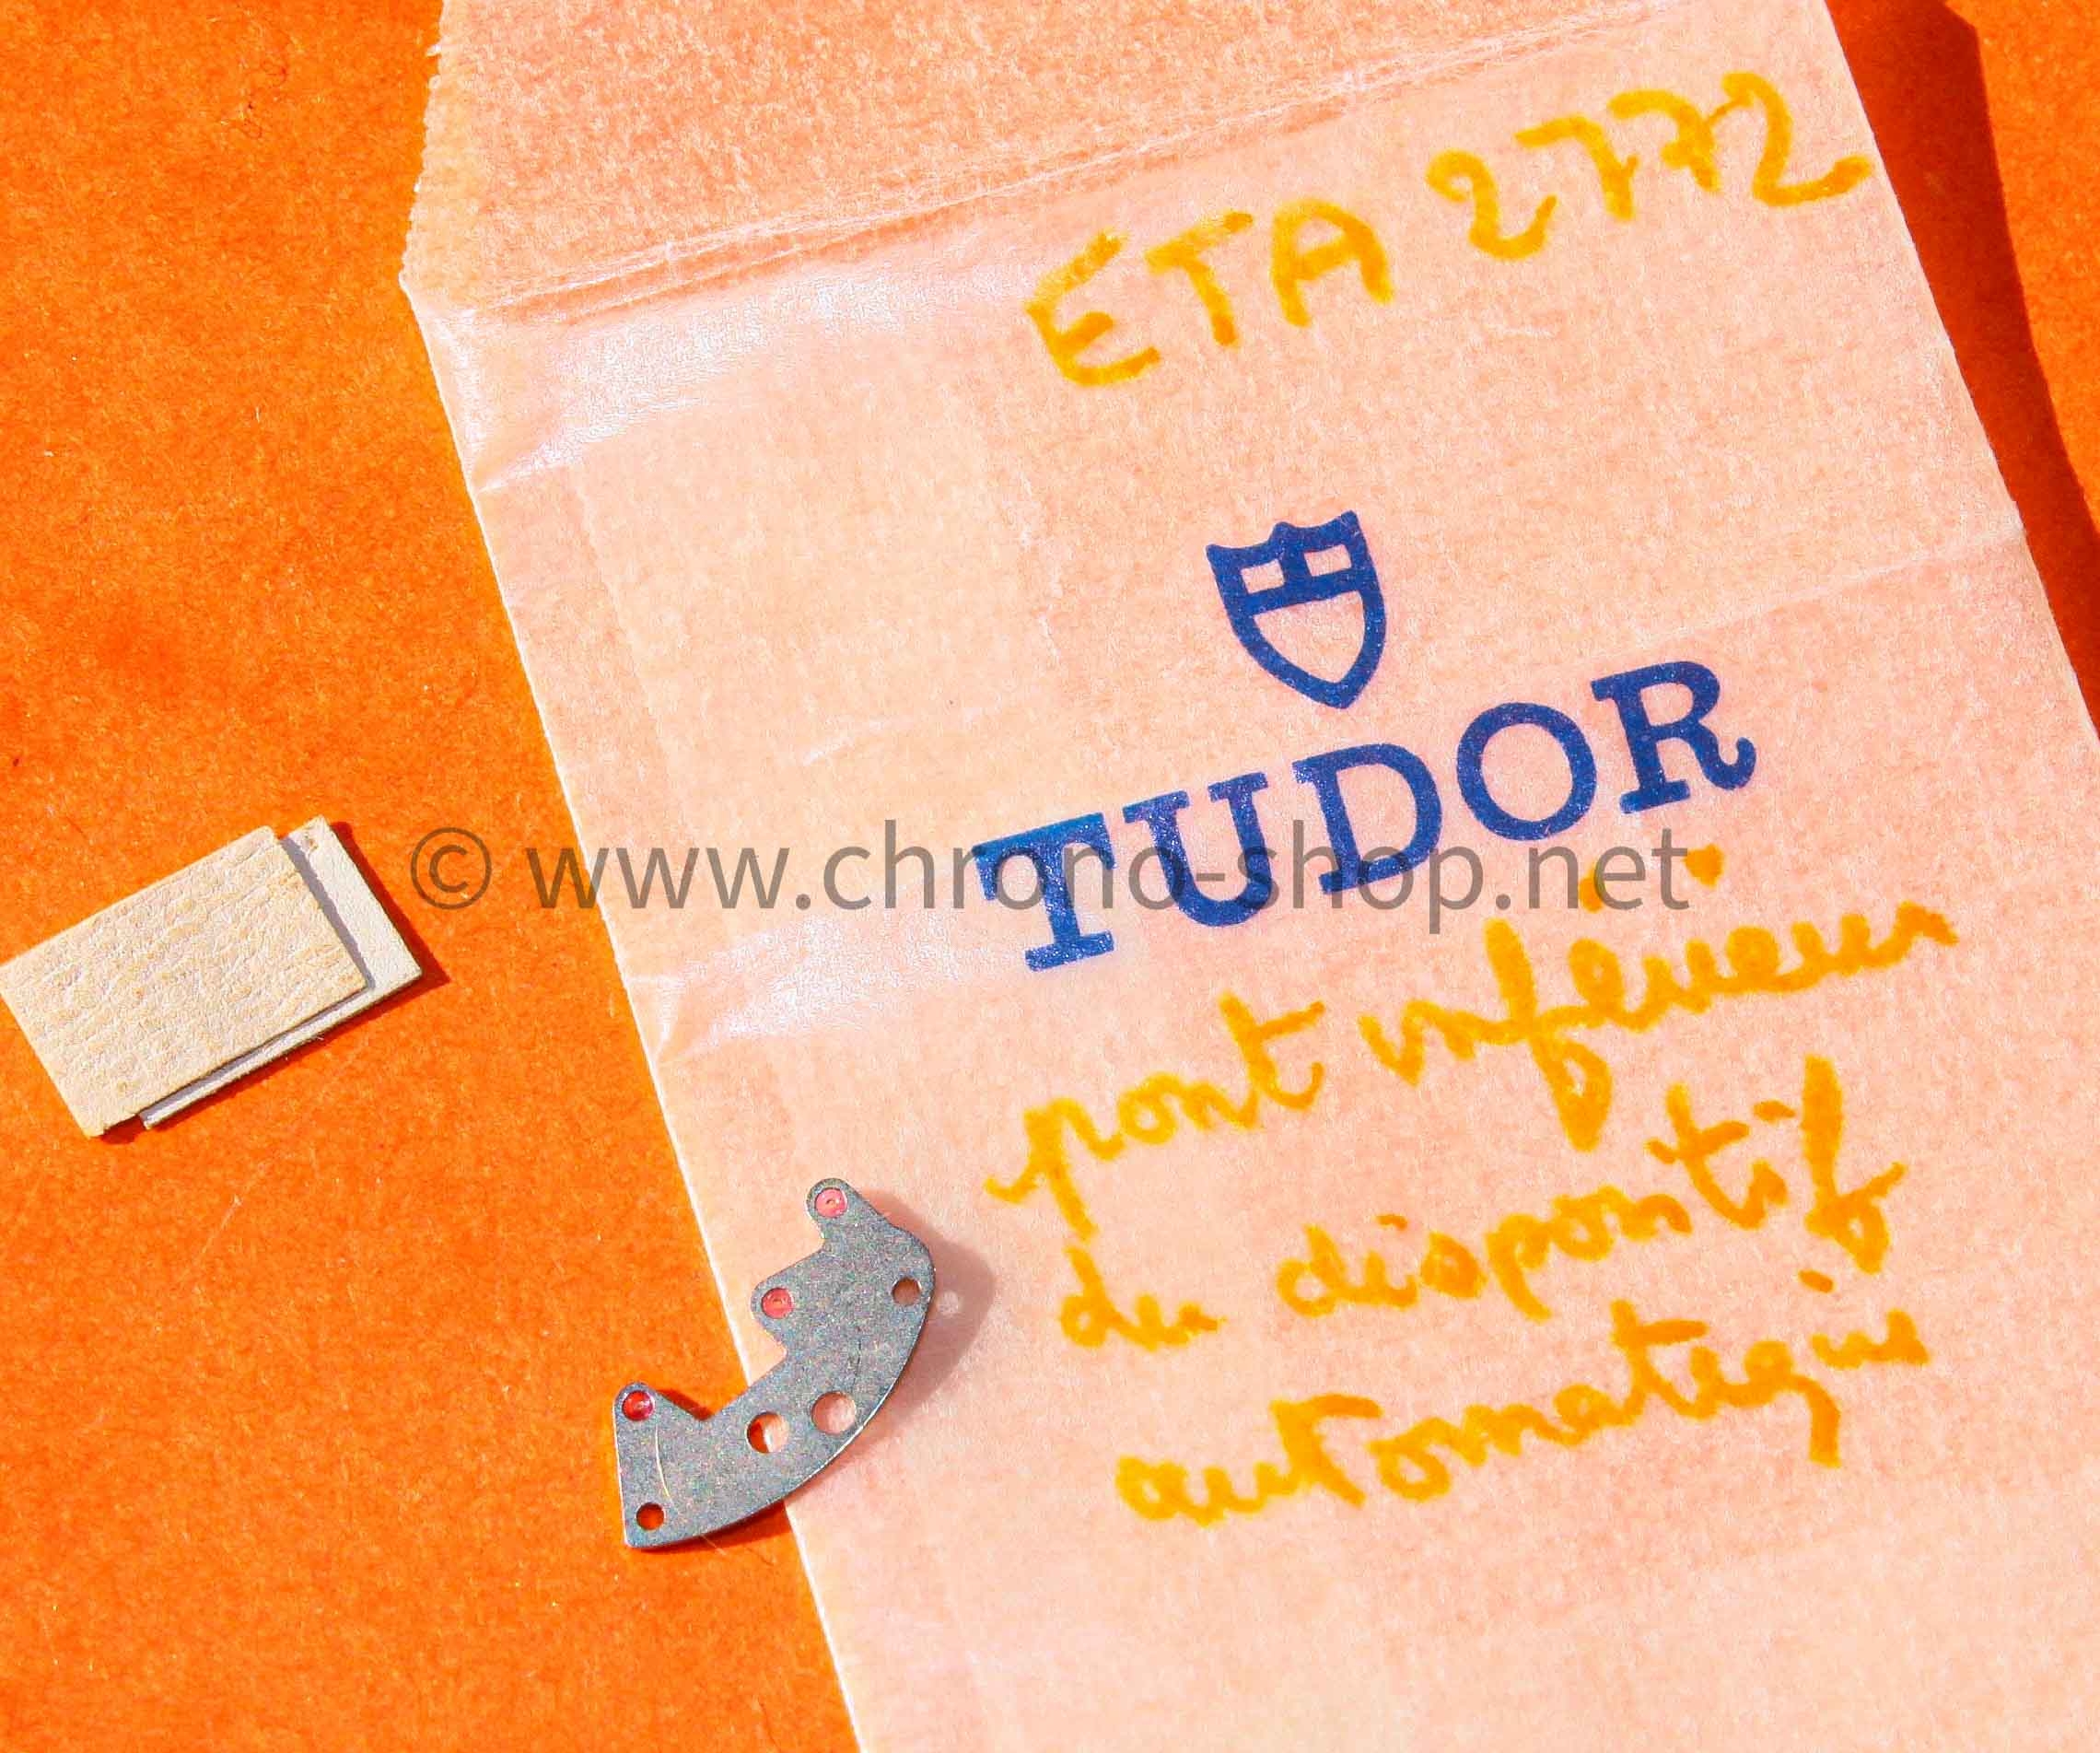 ETA 2772
TUDOR
© www.chrono-shop.net
pont inférieur
du dispositif
automatique